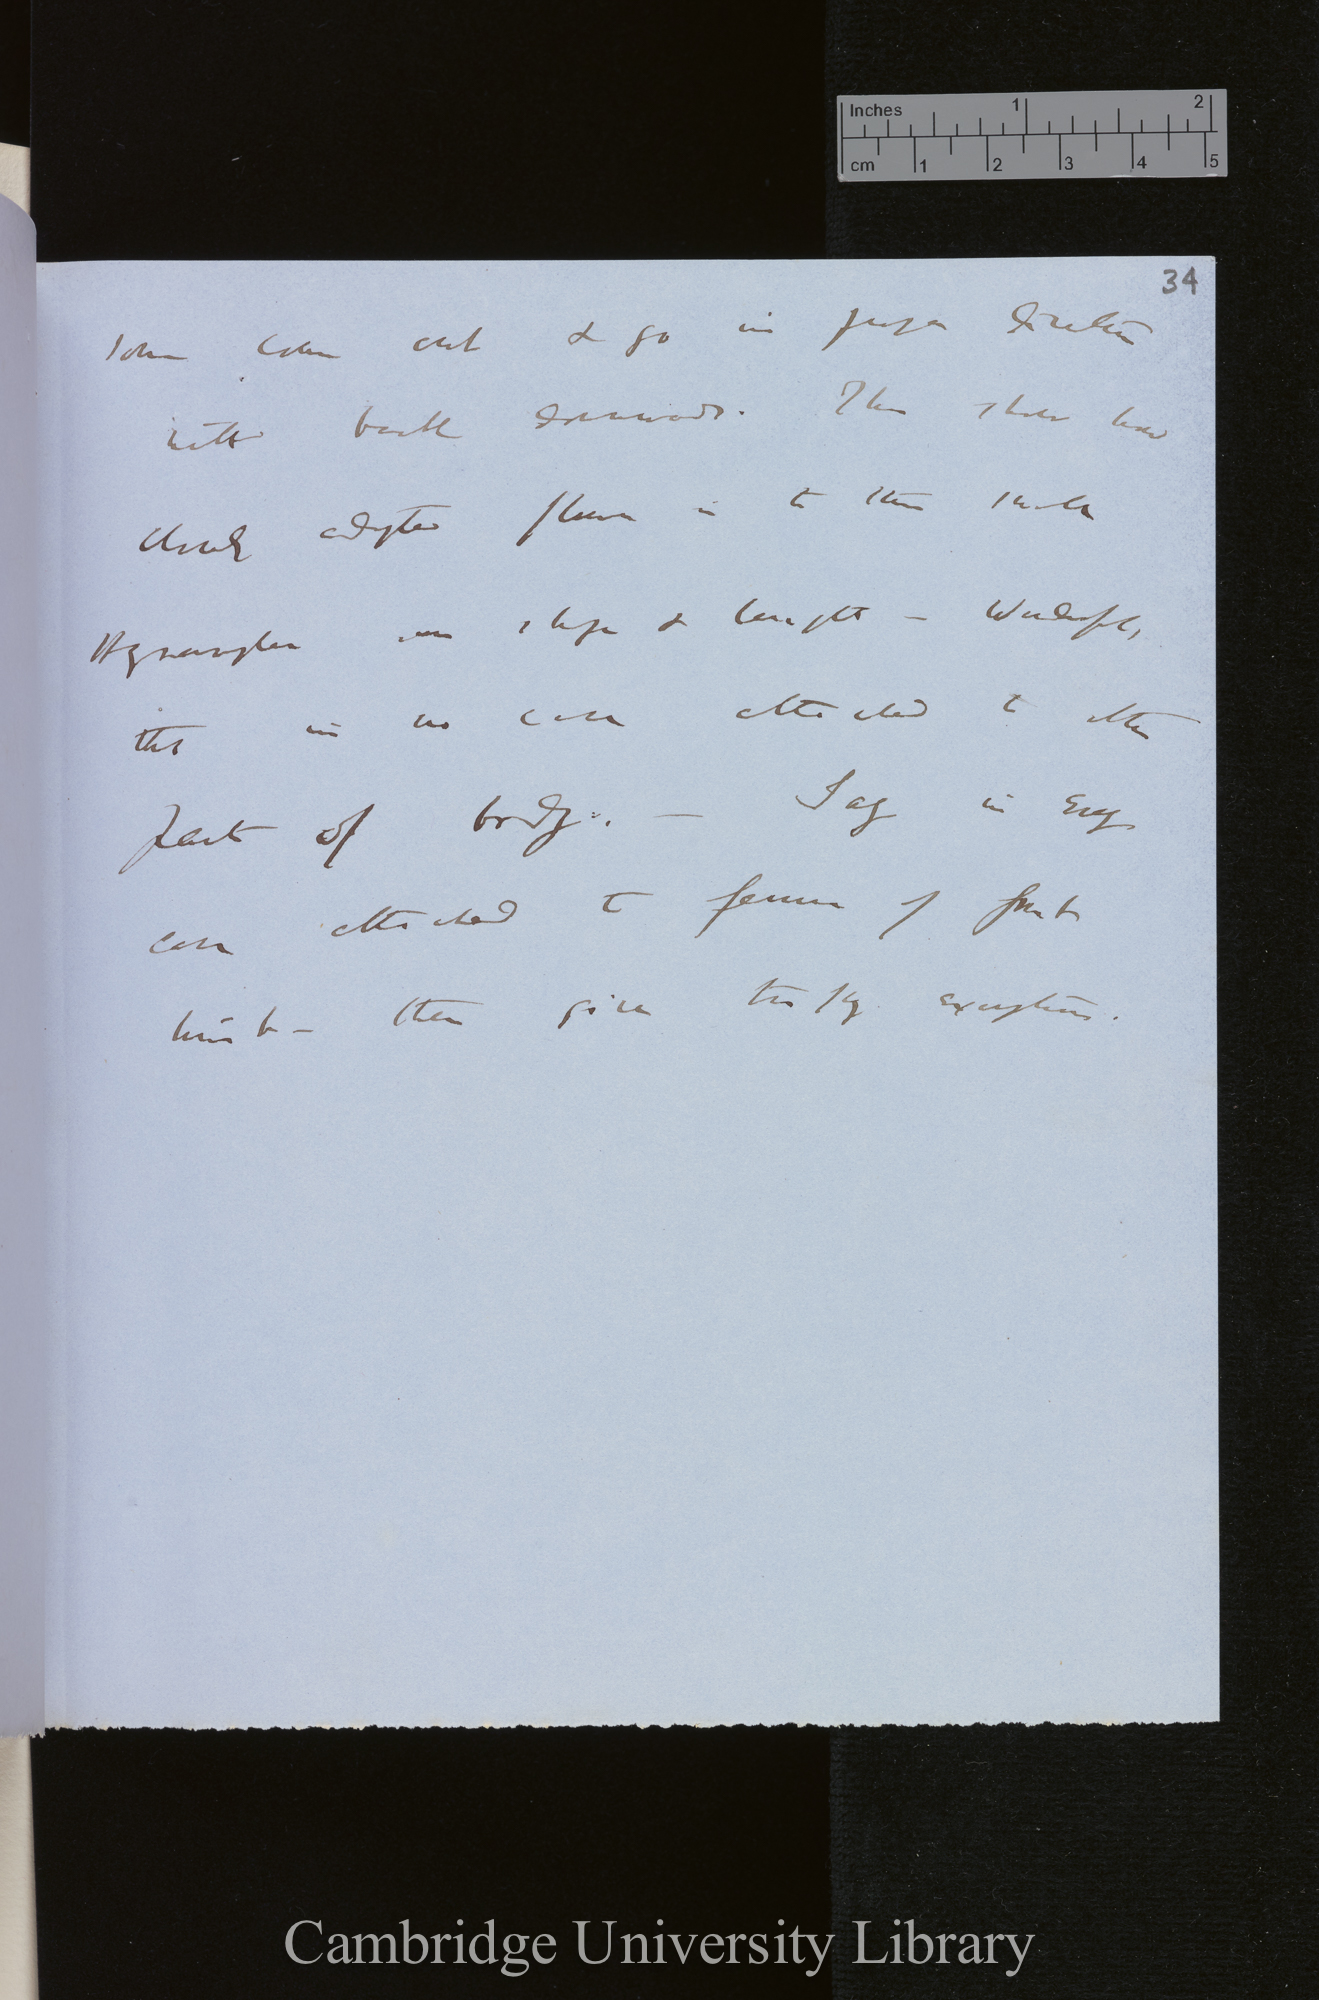 Inches 1 2
cm 1 2 3 4 5
34
some come out & go in proper direction
with back downwards. This shows how
closely adapted flower is to this
Hymenopter in shape & length — Wonderful,
that in no case attached to other
part of body. — Say in every
case attached to femur of front
limb — then give trifling exceptions.
Cambridge University Library